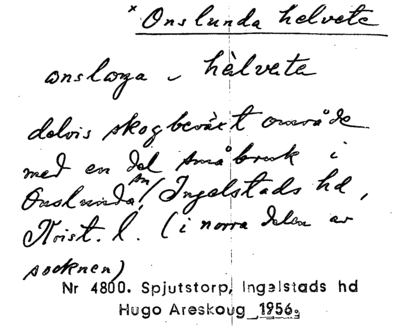 × Onslunda helvete
onslonga ~ hèlveta
delvis skogbeväxt område
med en del småbruk i
Onslunda sn, Ingelstads hd,
Krist. l. (i norra delen av
socknen)
Nr 4800. Spjutstorp, Ingelstads hd
Hugo Areskoug 1956.